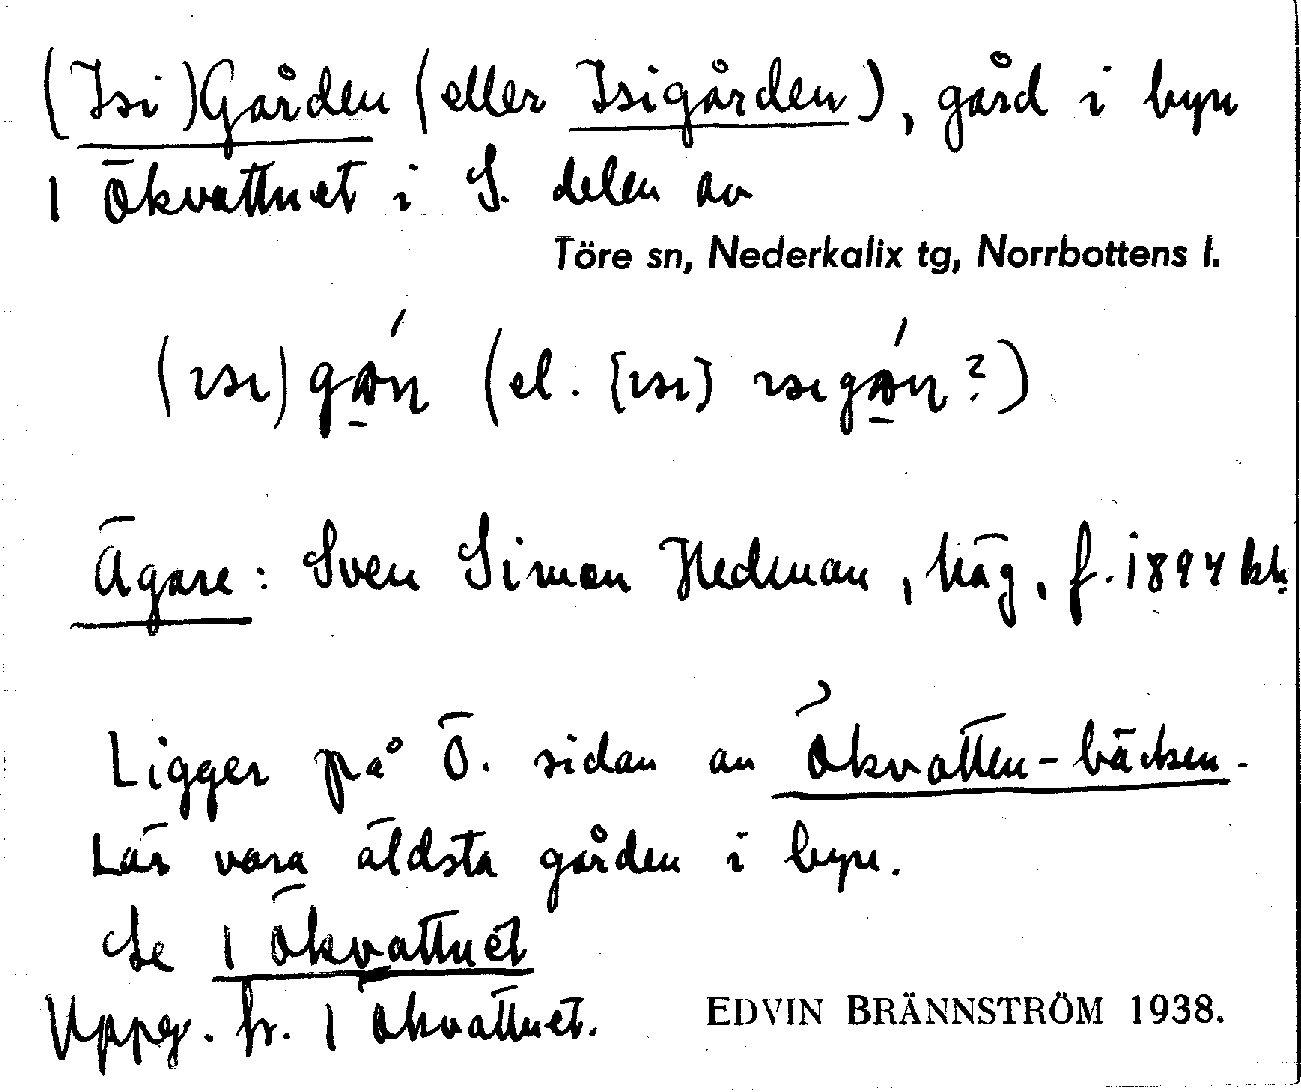 (Isi)Gården (eller Isigården), gård i byn
1 Ökvattnet i S. delen av
Töre sn, Nederkalix tg, Norrbottens l.
(el.
Ägare: Sven Simon Hedman, häg, f. 1894
Ligger på Ö. sidan av Ökvatten-bäcken.
Lär vara äldsta gården i byn.
Se 1 Ökvattnet
Uppg. fr. 1 Ökvattnet.
EDVIN BRÄNNSTRÖM 1938.